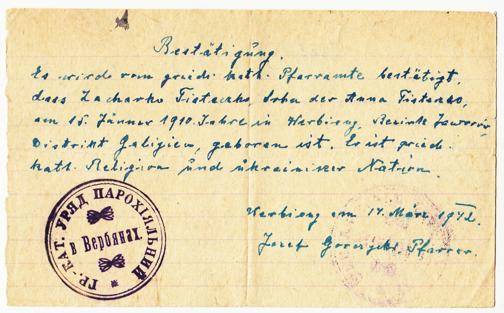 Bestätigung.
Es wird vom griech. kath. Pfarramte bestätigt,
dass Zacharko der Anna
am 15. Jänner 1910. Jahre in Werbiany, Bezirk Jaworów
Distrikt Galizien, geboren ist. Er ist griech.
kath. Religion und ukrainiker Nation.
Werbiany am 14. März 1942.
Josef Pfarrer.
ГР.-КАТ. УРЯД ПАРОХІЯЛЬНИЙ
в Вербянах.